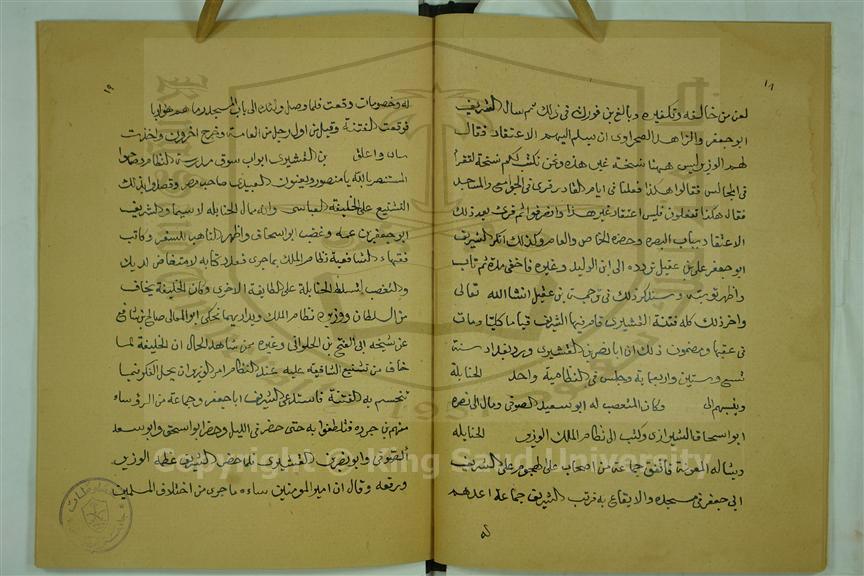 ١٨
لعن من خالفه وتكفيره وبالغ بن فورك في ذلك ثم سال الشريف
ابو جعفر والزاهد الصحراوى ان يسلم اليهم الاعتقاد فقال
لهم الوزير ليس ههنا نسخة غير هذه ونحن نكتب لكم نسخة لتقرأ
في المجالس فقالوا هكذا فعلنا في ايام القادر قرى في الجوامع والمساجد
فقال هكذا تفعلون فليس اعتقاد غير هذا وانصرفوا ثم قرئ بعد ذلك
الاعتقاد بباب البصرة وحضره الخاص والعام وكذلك انكر الشريف
ابو جعفر على بن عقيل تردده الى ابن الوليد وغيره فاختفى مدة ثم تاب
واظهر توبته وسنذكر ذلك في ترجمة بن عقيل انشا الله تعالى
واخر ذلك كله فتنة القشيري قام فيها الشريف قياما كليا ومات
في عقبها ومضمون ذلك ان ابا نصر بن القشيري ورد بغداد سنة
تسع وستين واربعماية وجلس في النظامية واخذ الحنابلة
وينسبهم الى وكان المتعصب له ابو سعيد الصوفى ومال الى نصره
ابو اسحاق الشيرازى وكتب الى نظام الملك الوزير الحنابله
ويساله المعونة فاتفق جماعة من اصحابه على الهجوم على الشريف
ابى جعفر في مسجده والايقاع به فرتب الشريف جماعة اعدهم
له
١٩
له وخصومات وقعت فلما وصل ولئك الى باب المسجد رماهم هولا
فوقعت الفتنة وقتل من اولـ رجل من العامة وجرح اخرون واخذت
واغلق بن القشيرى ابواب سوق مدرسة النظام وصاحوا
المستنصر بالله يا منصور ويعنون العبيدى صاحب مصر وقصدوا بذلك
التشنيع على الخليفة العباسى وانه مال الحنابله لا سيما والشريف
ابو جعفر بن عمه وغضب ابو اسحاق واظهر التاهب للسفر وكاتب
فقهاء الشافعية نظام الملك بما جرى فورد كتابه لامتعاض لذلك
والغضب لتسلط الحنابلة على الطايفة الاخرى وكان الخليفة يخاف
من السلطان ووزيره نظام الملك ويداريهما فحكى ابو المعالى صالح بن شافع
عن شيخه ابى الفتح بن الحلوانى وغيره من شاهد الحال ان الخليفة لما
خاف من تشنيع الشافعية عليه عند النظام امر الوزير ان يجيل الفكر فيما
تنحسم به الفتنة فاستدعى الشريف ابا جعفر وجماعة من الرؤساء
منهم بن جردة فتلطفوا به حتى حضر في الليل وحضر ابو اسحق وابو سعد
الصوفى وابو نصر بن القشيرى فلما حضر الشريف عظمه الوزير
ورفعه وقال ان امير المومنين ساءه ما جرى من اختلاف المسلمين
Copyright © King Saud University